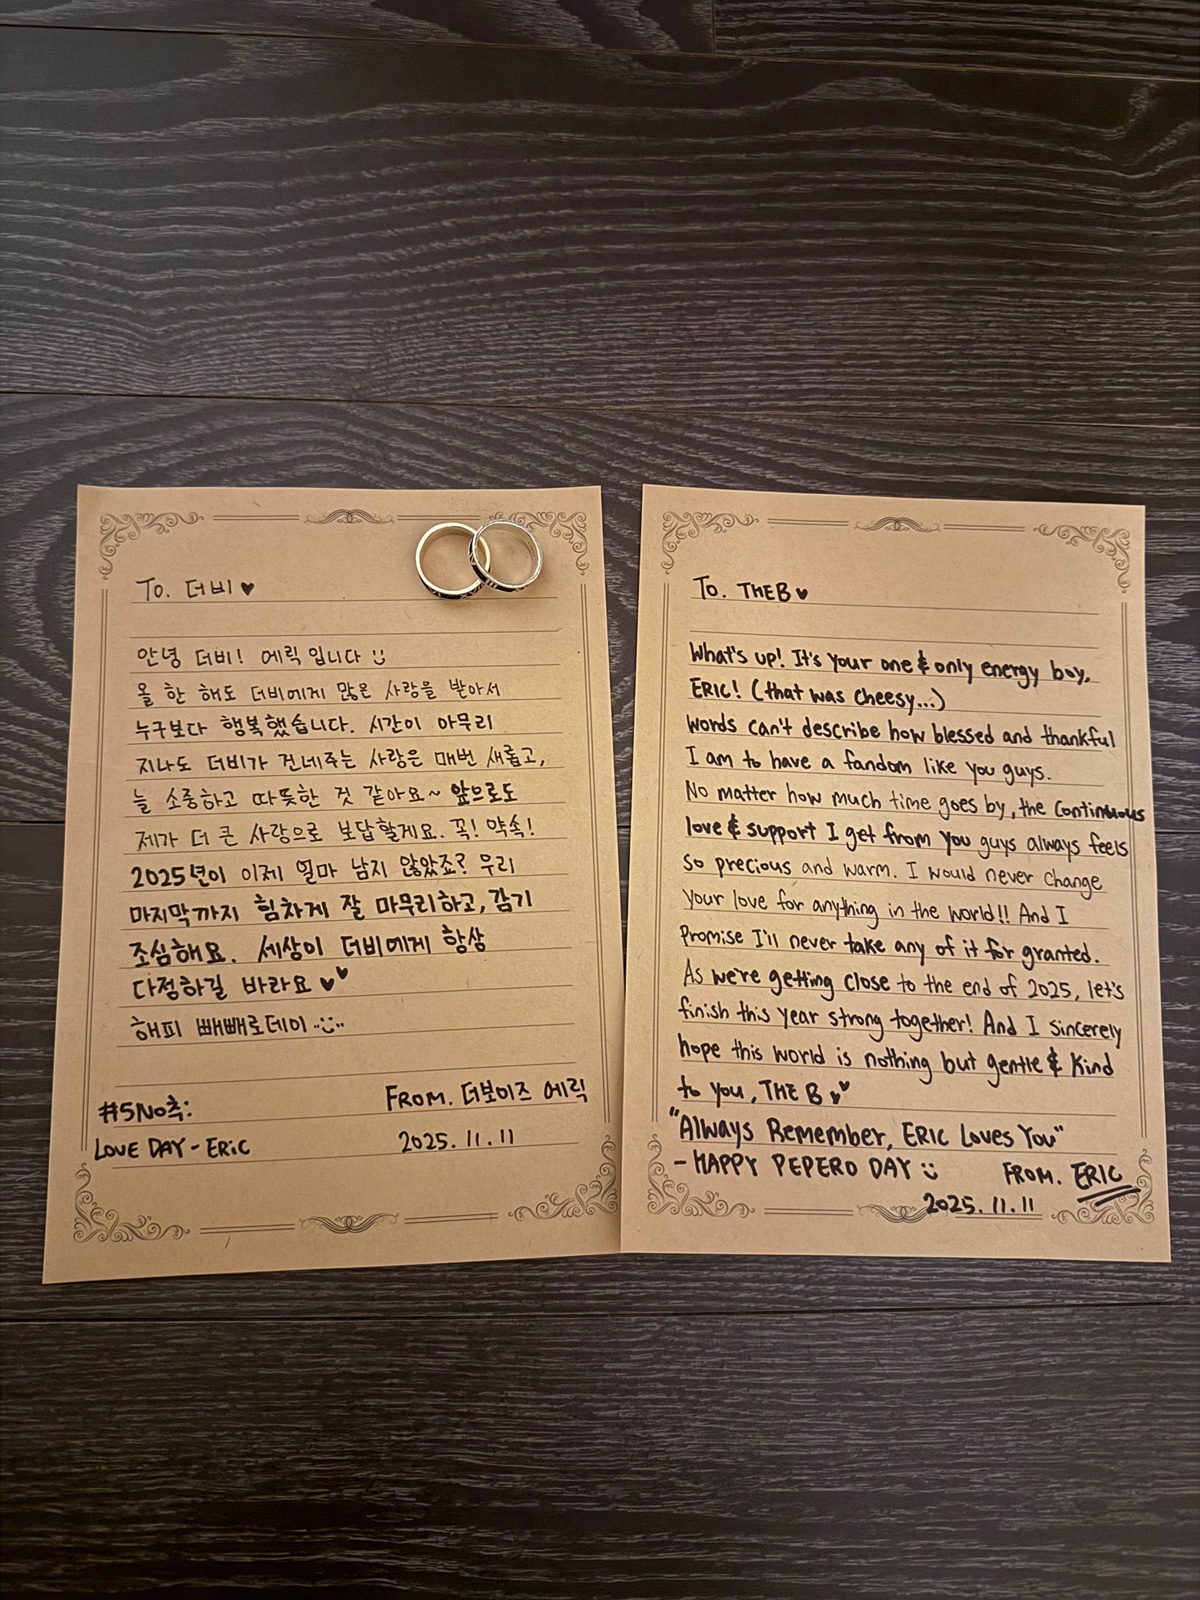 To. 더비 ♥
안녕 더비! 에릭입니다 :)
올 한 해도 더비에게 많은 사랑을 받아서
누구보다 행복했습니다. 시간이 아무리
지나도 더비가 건네주는 사랑은 매번 새롭고,
늘 소중하고 따뜻한 것 같아요~ 앞으로도
제가 더 큰 사랑으로 보답할게요. 꼭! 약속!
2025년이 이제 얼마 남지 않았죠? 우리
마지막까지 힘차게 잘 마무리하고, 감기
조심해요. 세상이 더비에게 항상
다정하길 바라요 ♥♥
해피 빼빼로데이 :)
#5NO추:
LOVE DAY - ERIC
FROM. 더보이즈 에릭
2025. 11. 11
To. THE B ♥
What's up! It's your one & only energy boy,
ERIC! (that was cheesy...)
Words can't describe how blessed and thankful
I am to have a fandom like you guys.
No matter how much time goes by, the continuous
love & support I get from you guys always feels
so precious and warm. I would never change
your love for anything in the world!! And I
Promise I'll never take any of it for granted.
As we're getting close to the end of 2025, let's
finish this year strong together! And I sincerely
hope this world is nothing but gentle & kind
to you, THE B ♥♥
"Always Remember, ERIC Loves You"
- HAPPY PEPERO DAY :)
FROM. ERIC
2025. 11. 11